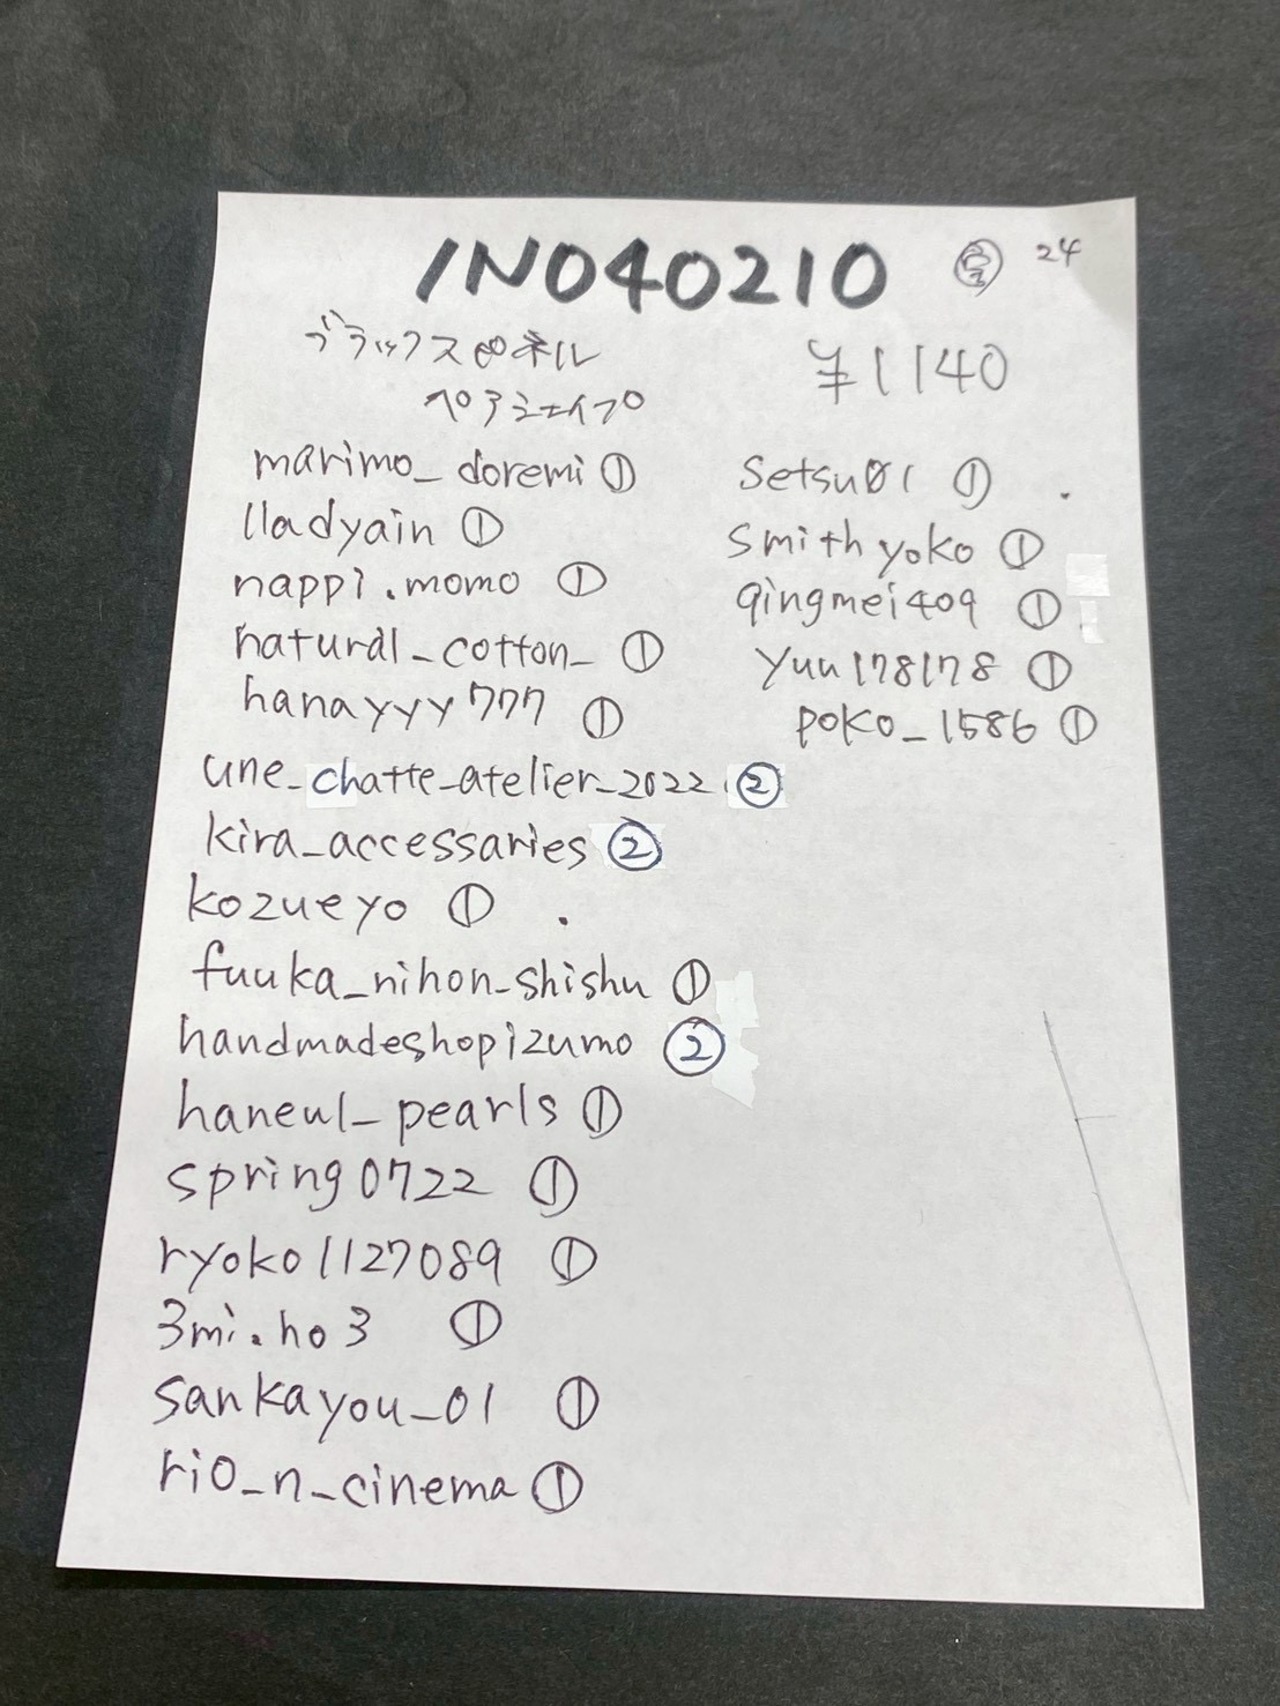 INO40210 24
ブラックスピネル ¥1140
ペアシェイプ
marimo_doremi ①
lladyain ①
nappi.momo ①
natural_cotton_ ①
hanayyy777 ①
une_chatte_atelier_2022 ②
kira_accessaries ②
kozueyo ①
fuuka_nihon_shishu ①
handmadeshopizumo ②
haneul_pearls ①
spring0722 ①
ryoko1127089 ①
3mi.ho3 ①
sankayou_01 ①
rio_n_cinema ①
setsu01 ①
smithyoko ①
qingmei409 ①
yuu178178 ①
poko_1586 ①